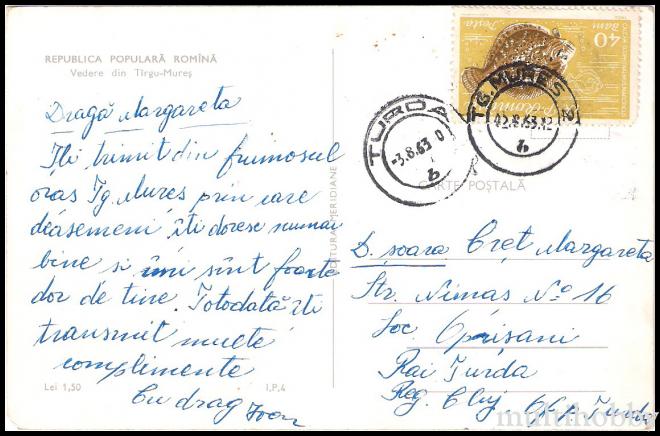 REPUBLICA POPULARĂ ROMÎNĂ
Vedere din Tîrgu-Mureș
Dragă Margareta
Iți trimit din frumosul
oraș Tg. Mureș prin care
deasemeni îti doresc numai
bine si îmi sînt foarte
dor de tine. Totodată îti
transmit multe
complimente
Cu drag Ioan
Lei 1,50
I.P.4
EDITURA MERIDIANE
40
bani
Posta
R.P. Romina
TURDA
-3.8.63 0
b
TG. MUREȘ 2
02.8.63.12
b
CARTE POȘTALĂ
D. șoara Creț Margareta
Str. Nimas No 16
Loc. Oprișani
Rai Turda
Reg. Cluj Turda
multihobby